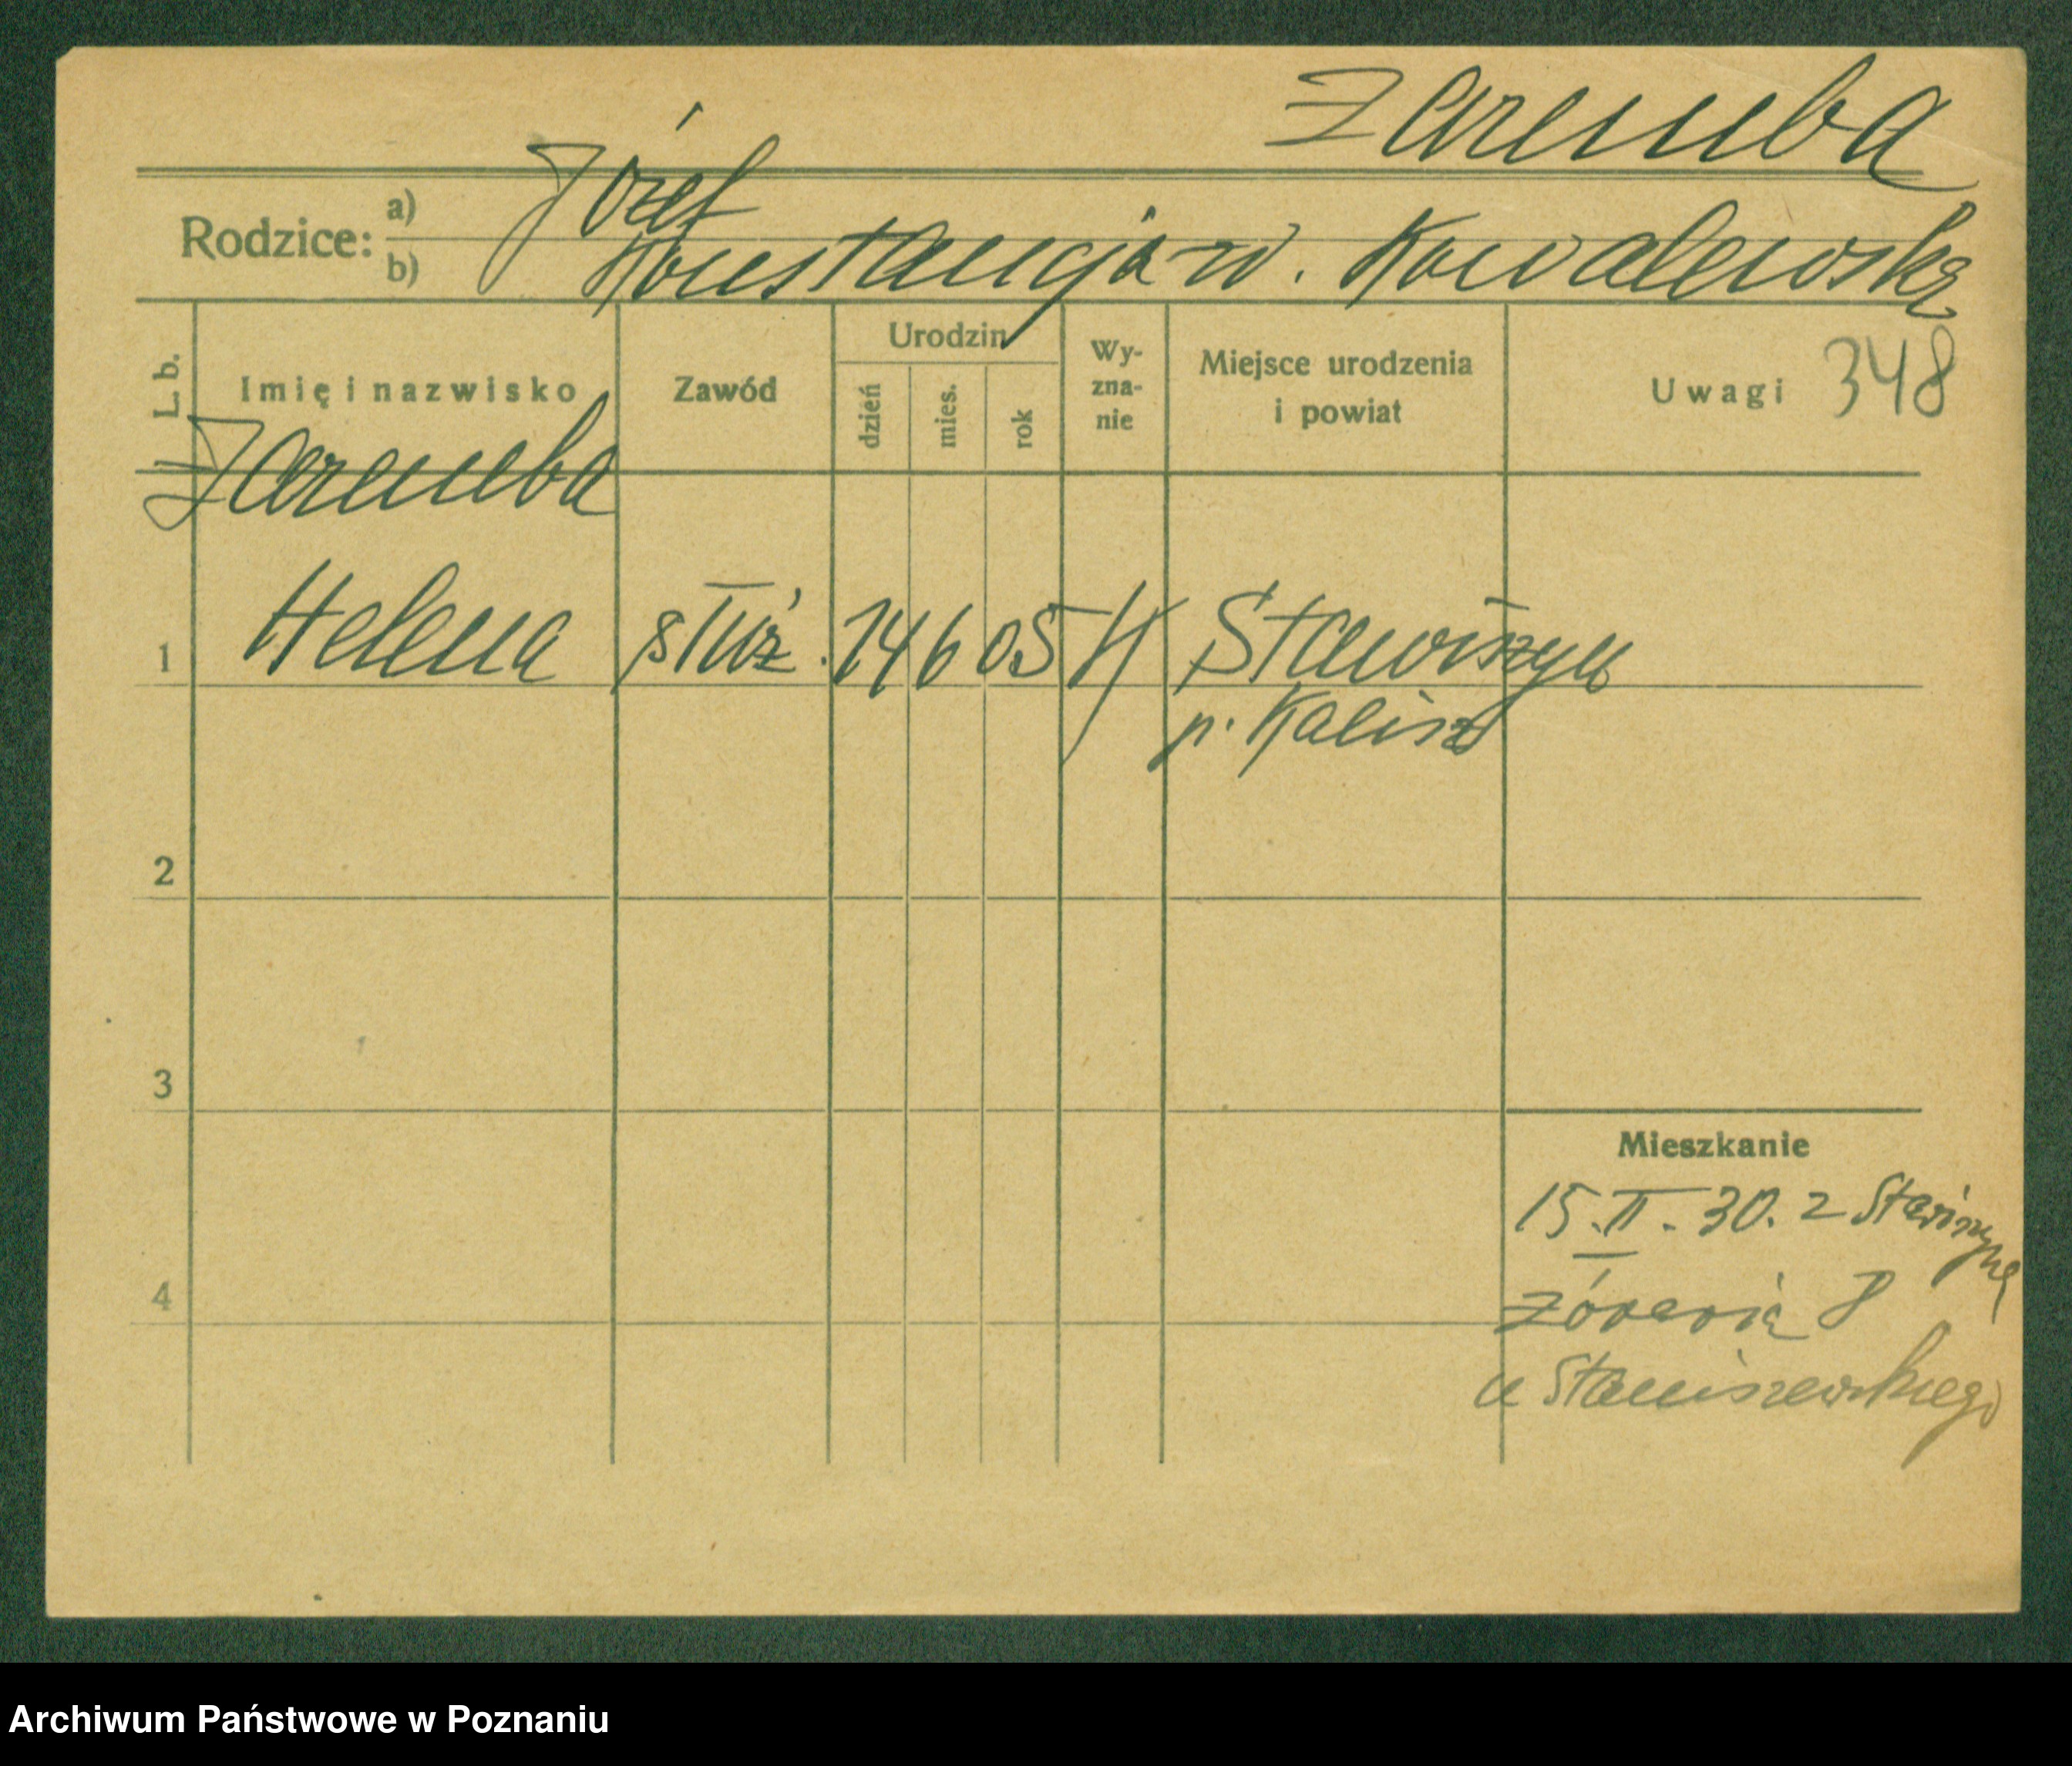 Zaremba
Rodzice: a) Józef
b) Konstancja w. Kowalewska
L. b. Imię i nazwisko Zawód Urodzin dzień mies. rok Wy-zna-nie Miejsce urodzenia i powiat Uwagi 348
Zaremba
1 Helena służ. 14 6 05 K Stawiszyn
p. Kalisz
2
3
Mieszkanie
15.II.30. z Stawiszyna
4
8
u Staniszewskiego
Archiwum Państwowe w Poznaniu